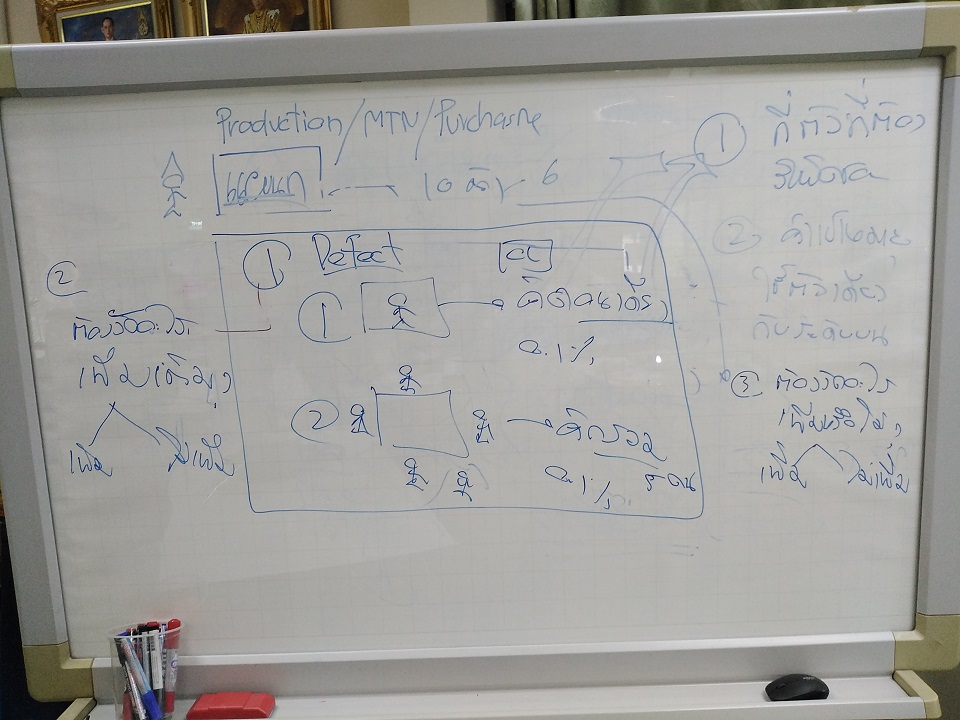 Production/MTN/Purchasing
แผนก
10 ตัว 6
① Defect
CC
① คิดคนเดียว
0.1%
② คิดรวม
0.1% 5 คน
②
ต้องวัดอะไร
เพิ่มเติม?
เพิ่ม ไม่เพิ่ม
① กี่ตัวที่ต้อง
รับผิดชอบ
② ค่าเป้าหมาย
ใช้ตัวเดียว
กับระดับบน
③ ต้องวัดอะไร
เพิ่มหรือไม่?
เพิ่ม ไม่เพิ่ม